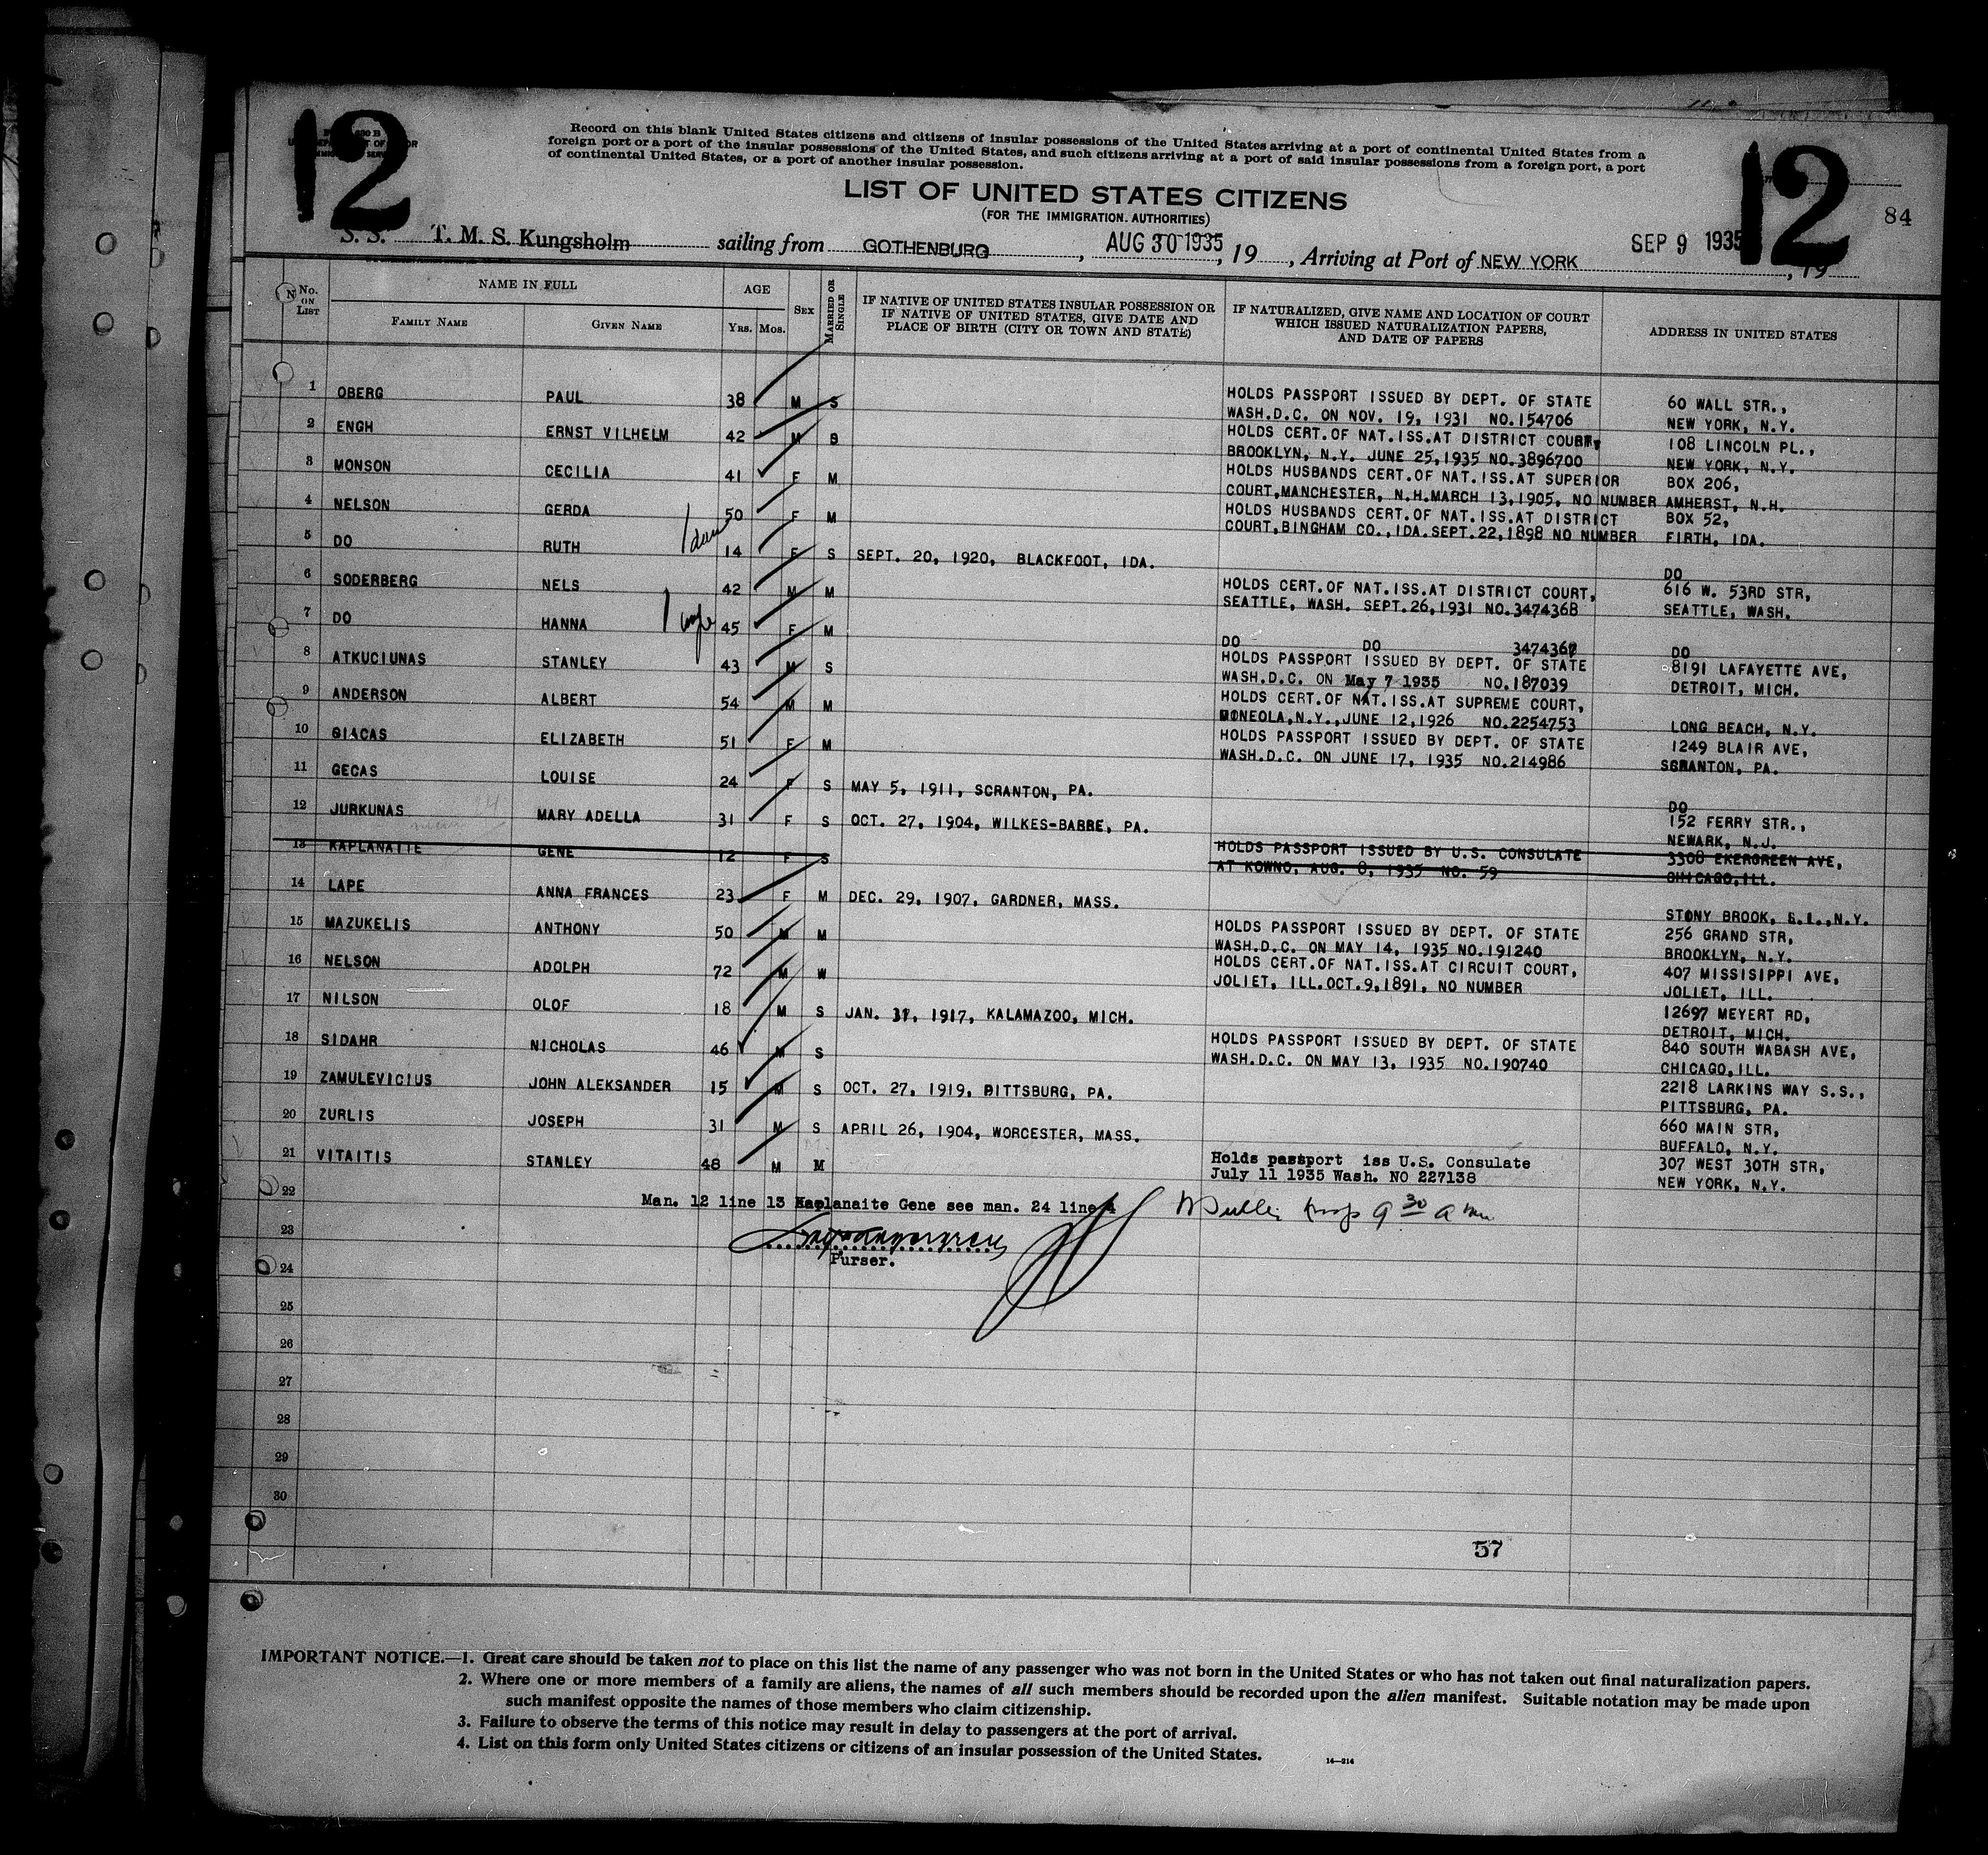 12
12
84
Record on this blank United States citizens and citizens of insular possessions of the United States arriving at a port of continental United States from a
foreign port or a port of the insular possessions of the United States, and such citizens arriving at a port of said insular possessions from a foreign port, a port
of continental United States, or a port of another insular possession.
LIST OF UNITED STATES CITIZENS
(FOR THE IMMIGRATION AUTHORITIES)
S. S. T. M. S. Kungsholm sailing from GOTHENBURG, AUG 30 1935, 19 , Arriving at Port of NEW YORK SEP 9 1935, 19
No. ON LIST
NAME IN FULL
FAMILY NAME
GIVEN NAME
AGE
YRS. MOS.
SEX
MARRIED OR SINGLE
IF NATIVE OF UNITED STATES INSULAR POSSESSION OR
IF NATIVE OF UNITED STATES, GIVE DATE AND
PLACE OF BIRTH (CITY OR TOWN AND STATE)
IF NATURALIZED, GIVE NAME AND LOCATION OF COURT
WHICH ISSUED NATURALIZATION PAPERS,
AND DATE OF PAPERS
ADDRESS IN UNITED STATES
1 OBERG PAUL 38 M S HOLDS PASSPORT ISSUED BY DEPT. OF STATE 60 WALL STR.,
WASH.D.C. ON NOV. 19, 1931 NO.154706 NEW YORK, N.Y.
2 ENGH ERNST VILHELM 42 M S HOLDS CERT.OF NAT.ISS.AT DISTRICT COURT, 108 LINCOLN PL.,
BROOKLYN, N.Y. JUNE 25,1935 NO.3896700 NEW YORK, N.Y.
3 MONSON CECILIA 41 F M HOLDS HUSBANDS CERT.OF NAT.ISS.AT SUPERIOR BOX 206,
COURT,MANCHESTER, N.H.MARCH 13,1905, NO NUMBER AMHERST, N.H.
4 NELSON GERDA 50 F M HOLDS HUSBANDS CERT.OF NAT.ISS.AT DISTRICT BOX 52,
COURT,BINGHAM CO.,IDA.SEPT.22,1898 NO NUMBER FIRTH, IDA.
5 DO RUTH 14 F S SEPT. 20, 1920, BLACKFOOT, IDA. DO
6 SODERBERG NELS 42 M M HOLDS CERT.OF NAT.ISS.AT DISTRICT COURT, 616 W. 53RD STR,
SEATTLE, WASH. SEPT.26,1931 NO.3474368 SEATTLE, WASH.
7 DO HANNA 1 wife 45 F M DO DO 3474367 DO
8 ATKUCIUNAS STANLEY 43 M S HOLDS PASSPORT ISSUED BY DEPT. OF STATE 8191 LAFAYETTE AVE,
WASH.D.C. ON May 7 1935 NO.187039 DETROIT, MICH.
9 ANDERSON ALBERT 54 M M HOLDS CERT.OF NAT.ISS.AT SUPREME COURT,
MINEOLA,N.Y.,JUNE 12,1926 NO.2254753 LONG BEACH, N.Y.
10 GIACAS ELIZABETH 51 F M HOLDS PASSPORT ISSUED BY DEPT. OF STATE 1249 BLAIR AVE,
WASH.D.C. ON JUNE 17, 1935 NO.214986 SCRANTON, PA.
11 GECAS LOUISE 24 F S MAY 5, 1911, SCRANTON, PA. DO
12 JURKUNAS MARY ADELLA 31 F S OCT. 27, 1904, WILKES-BARRE, PA. 152 FERRY STR.,
NEWARK, N.J.
13 KAPLANAITE GENE 12 F S HOLDS PASSPORT ISSUED BY U.S. CONSULATE 3308 EKERGREEN AVE,
AT KOWNO, AUG. 8, 1935 NO. 59 CHICAGO,ILL.
14 LAPE ANNA FRANCES 23 F M DEC. 29, 1907, GARDNER, MASS. STONY BROOK, L.I.,N.Y.
15 MAZUKELIS ANTHONY 50 M M HOLDS PASSPORT ISSUED BY DEPT. OF STATE 256 GRAND STR,
WASH.D.C. ON MAY 14, 1935 NO.191240 BROOKLYN, N.Y.
16 NELSON ADOLPH 72 M W HOLDS CERT.OF NAT.ISS.AT CIRCUIT COURT, 407 MISSISIPPI AVE,
JOLIET, ILL.OCT.9,1891, NO NUMBER JOLIET, ILL.
17 NILSON OLOF 18 M S JAN. 31, 1917, KALAMAZOO, MICH. 12697 MEYERT RD,
DETROIT, MICH.
18 SIDAHR NICHOLAS 46 M S HOLDS PASSPORT ISSUED BY DEPT. OF STATE 840 SOUTH WABASH AVE,
WASH.D.C. ON MAY 13, 1935 NO.190740 CHICAGO,ILL.
19 ZAMULEVICIUS JOHN ALEKSANDER 15 M S OCT. 27, 1919, PITTSBURG, PA. 2218 LARKINS WAY S.S.,
PITTSBURG, PA.
20 ZURLIS JOSEPH 31 M S APRIL 26, 1904, WORCESTER, MASS. 660 MAIN STR,
BUFFALO, N.Y.
21 VITAITIS STANLEY 48 M M Holds passport iss U.S. Consulate 307 WEST 30TH STR,
July 11 1935 Wash. NO 227138 NEW YORK, N.Y.
22 Man. 12 line 13 Kaplanaite Gene see man. 24 line 4
9 30 a m
23
Purser.
24
25
26
27
28
29
30
57
IMPORTANT NOTICE.—1. Great care should be taken not to place on this list the name of any passenger who was not born in the United States or who has not taken out final naturalization papers.
2. Where one or more members of a family are aliens, the names of all such members should be recorded upon the alien manifest. Suitable notation may be made upon
such manifest opposite the names of those members who claim citizenship.
3. Failure to observe the terms of this notice may result in delay to passengers at the port of arrival.
4. List on this form only United States citizens or citizens of an insular possession of the United States.
14—214